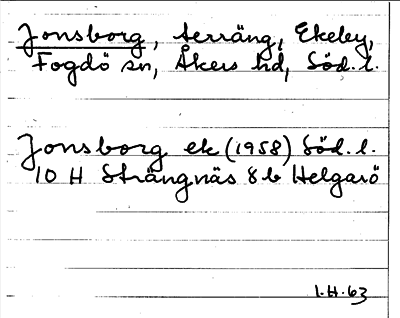 Jonsborg, terräng, Ekeby,
Fogdö sn, Åkers hd, Söd. l.
Jonsborg ek (1958) Söd. l.
10 H Strängnäs 8 b Helgarö
1.H.63